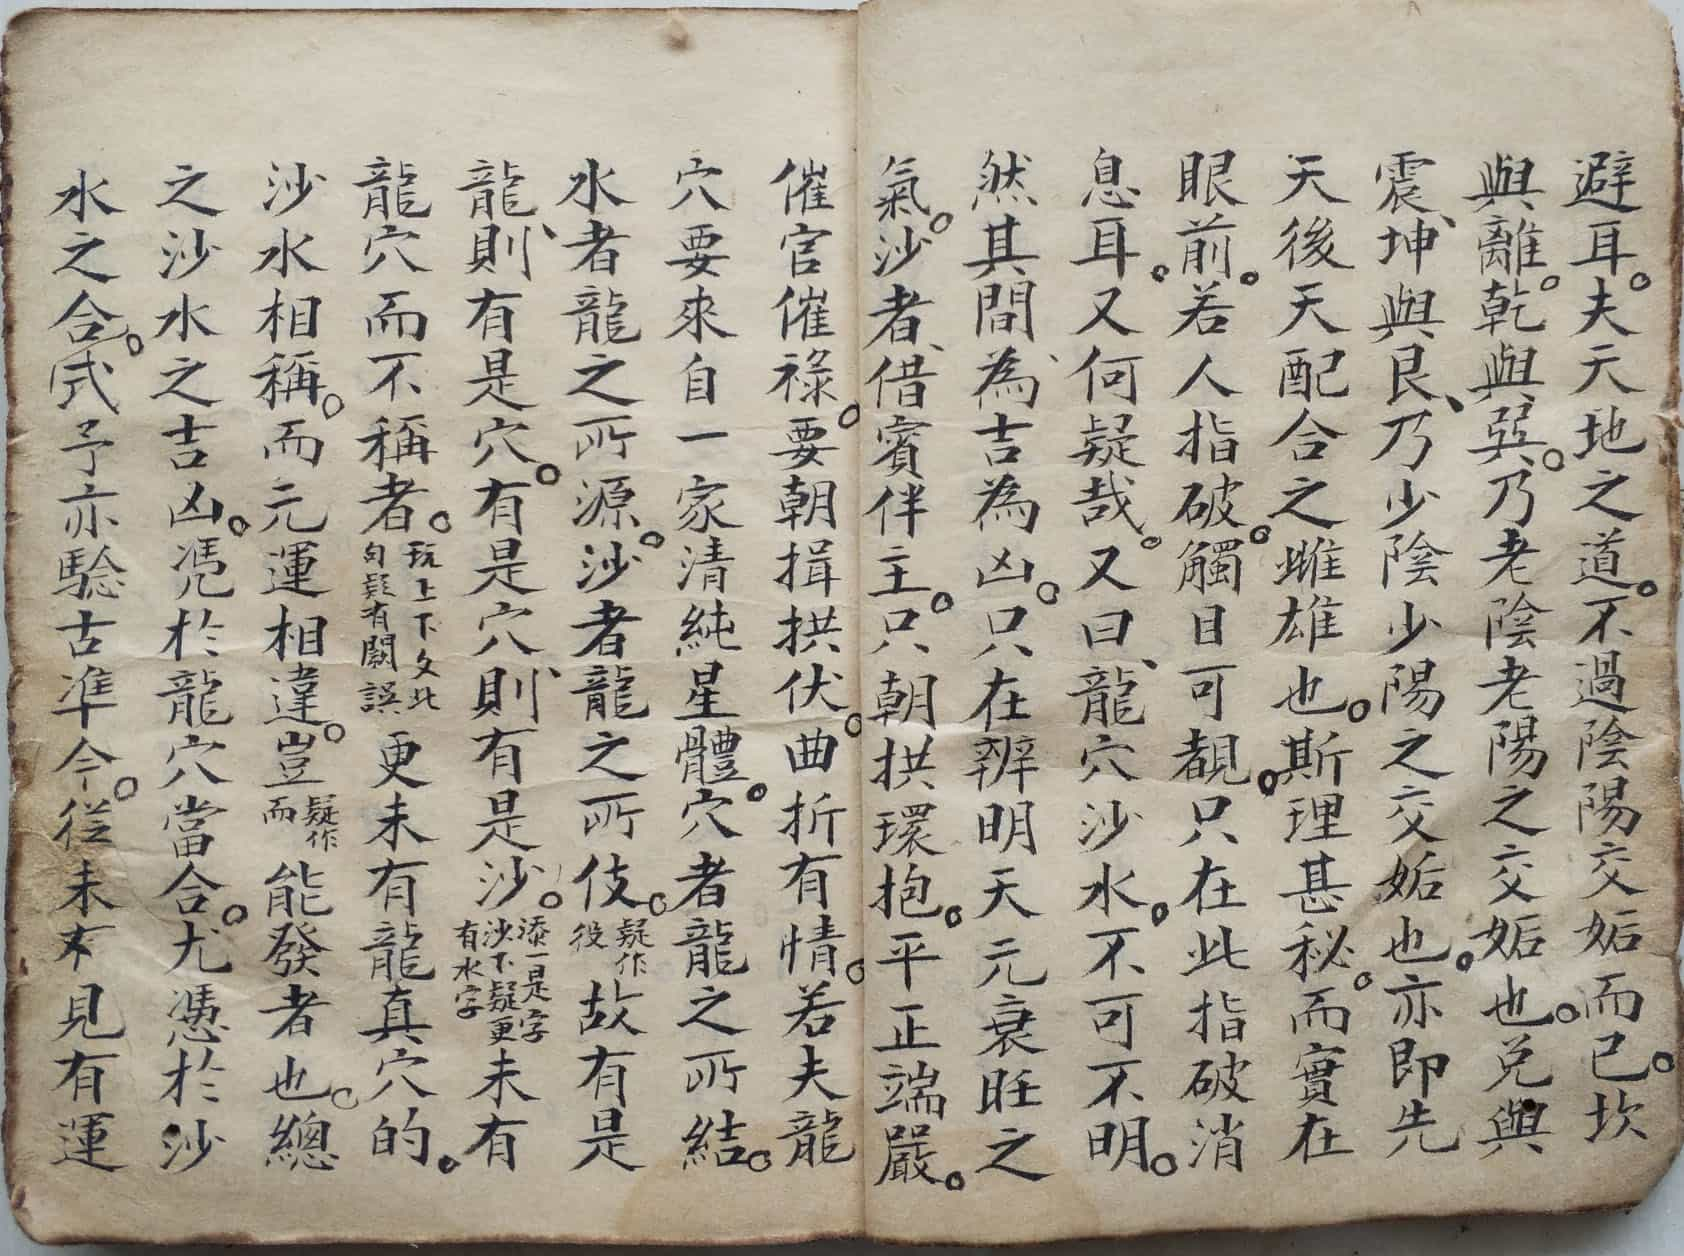 避耳。夫天地之道。不過陰陽交姤而已。坎
與離。乾與巽。乃老陰老陽之交姤也。兌與
震、坤與艮、乃少陰少陽之交姤也。亦即先
天後天配合之雌雄也。斯理甚秘。而實在
眼前。若人指破。觸目可覩。只在此指破消
息耳。又何疑哉。又曰、龍穴沙水。不可不明。
然其間、為吉為凶。只在辨明天元衰旺之
氣。沙者、借賓伴主。只朝拱環抱。平正端嚴。
催官催祿。要朝揖拱伏。曲折有情。若夫龍
穴要來自一家清純星體。穴者龍之所結。
水者龍之所源。沙者龍之所伎。疑作役故有是
龍、則有是穴。有是穴、則有是沙。添一是字沙下疑更有水字未有
龍穴而不稱者。玩上下文此句疑有闕誤更未有龍真穴的。
沙水相稱。而元運相違。豈疑作而能發者也。總
之沙水之吉凶。憑於龍穴當合。尤憑於沙
水之合式。予亦驗古準今。從未有見有運